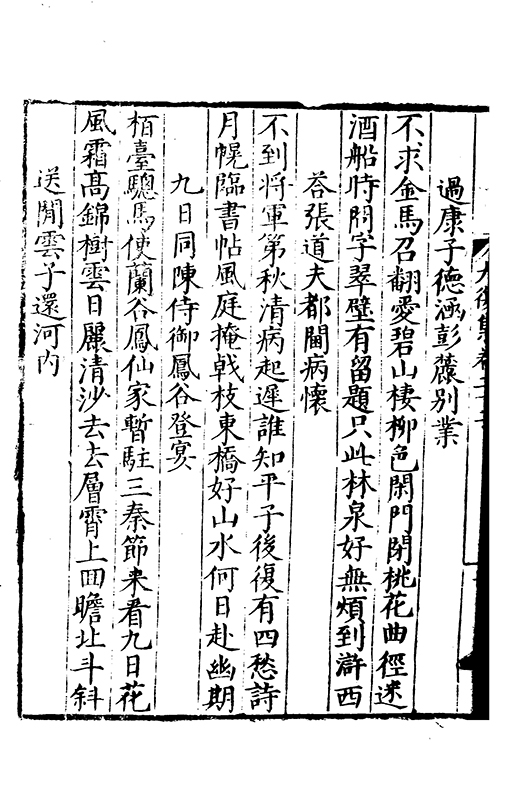 過康子德涵彭麓別業
不求金馬召翻愛碧山棲柳色閑門閉桃花曲徑迷
酒船時問字翠壁有留題只此林泉好無煩到滸西
荅張道夫都閫病懷
不到将軍第秋清病起遲誰知平子後復有四愁詩
月幌臨書帖風庭掩戟枝東橋好山水何日赴幽期
九日同陳侍御鳳谷登宴
栢臺驄馬使蘭谷鳳仙家暫駐三秦節来看九日花
風霜髙錦樹雲日麗清沙去去層霄上囬瞻北斗斜
送閒雲子還河内